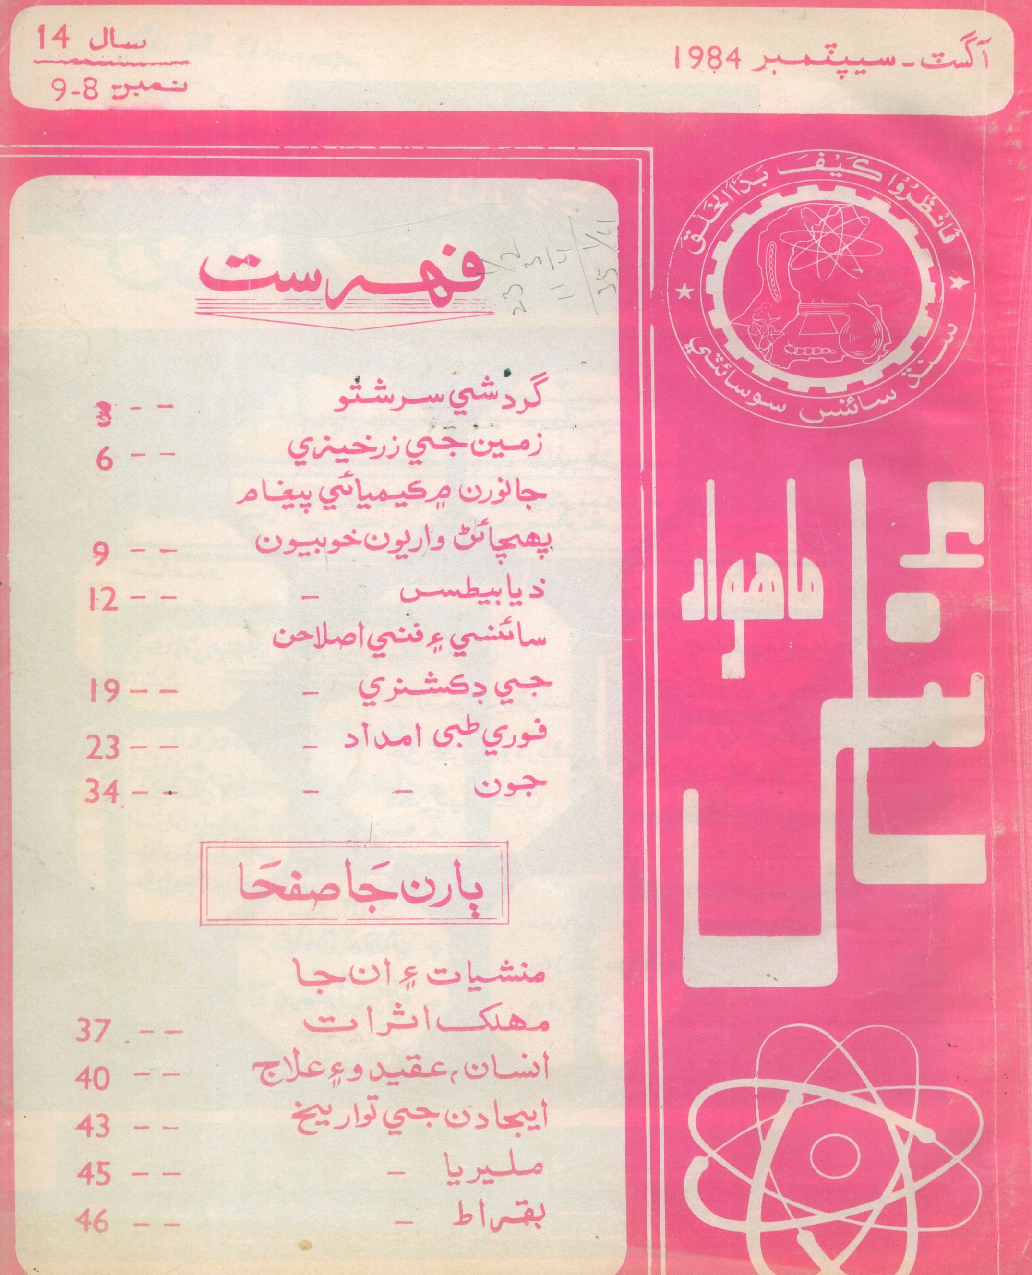 آگسٽ - سيپٽمبر 1984
سال 14
نمبر 8-9
فَانْظُرُوْا کَیْفَ بَدَأَ الْخَلْقَ
سنڌ سائنس سوسائٽي
ماهوار
سائنس
فهرست
گردشي سرشتو - - 3
زمين جي زرخيزي - - 6
جانورن ۾ ڪيميائي پيغام
پهچائڻ واريون خوبيون - - 9
ذيابيطس - - - 12
سائنسي ۽ فني اصلاحن
جي ڊڪشنري - - - 19
فوري طبي امداد - - - 23
جون - - - - 34
ٻارن جا صفحا
منشيات ۽ ان جا
مهلڪ اثرات - - 37
انسان، عقيدو ۽ علاج - - 40
ايجادن جي تواريخ - - 43
مليريا - - - 45
بقراط - - - 46